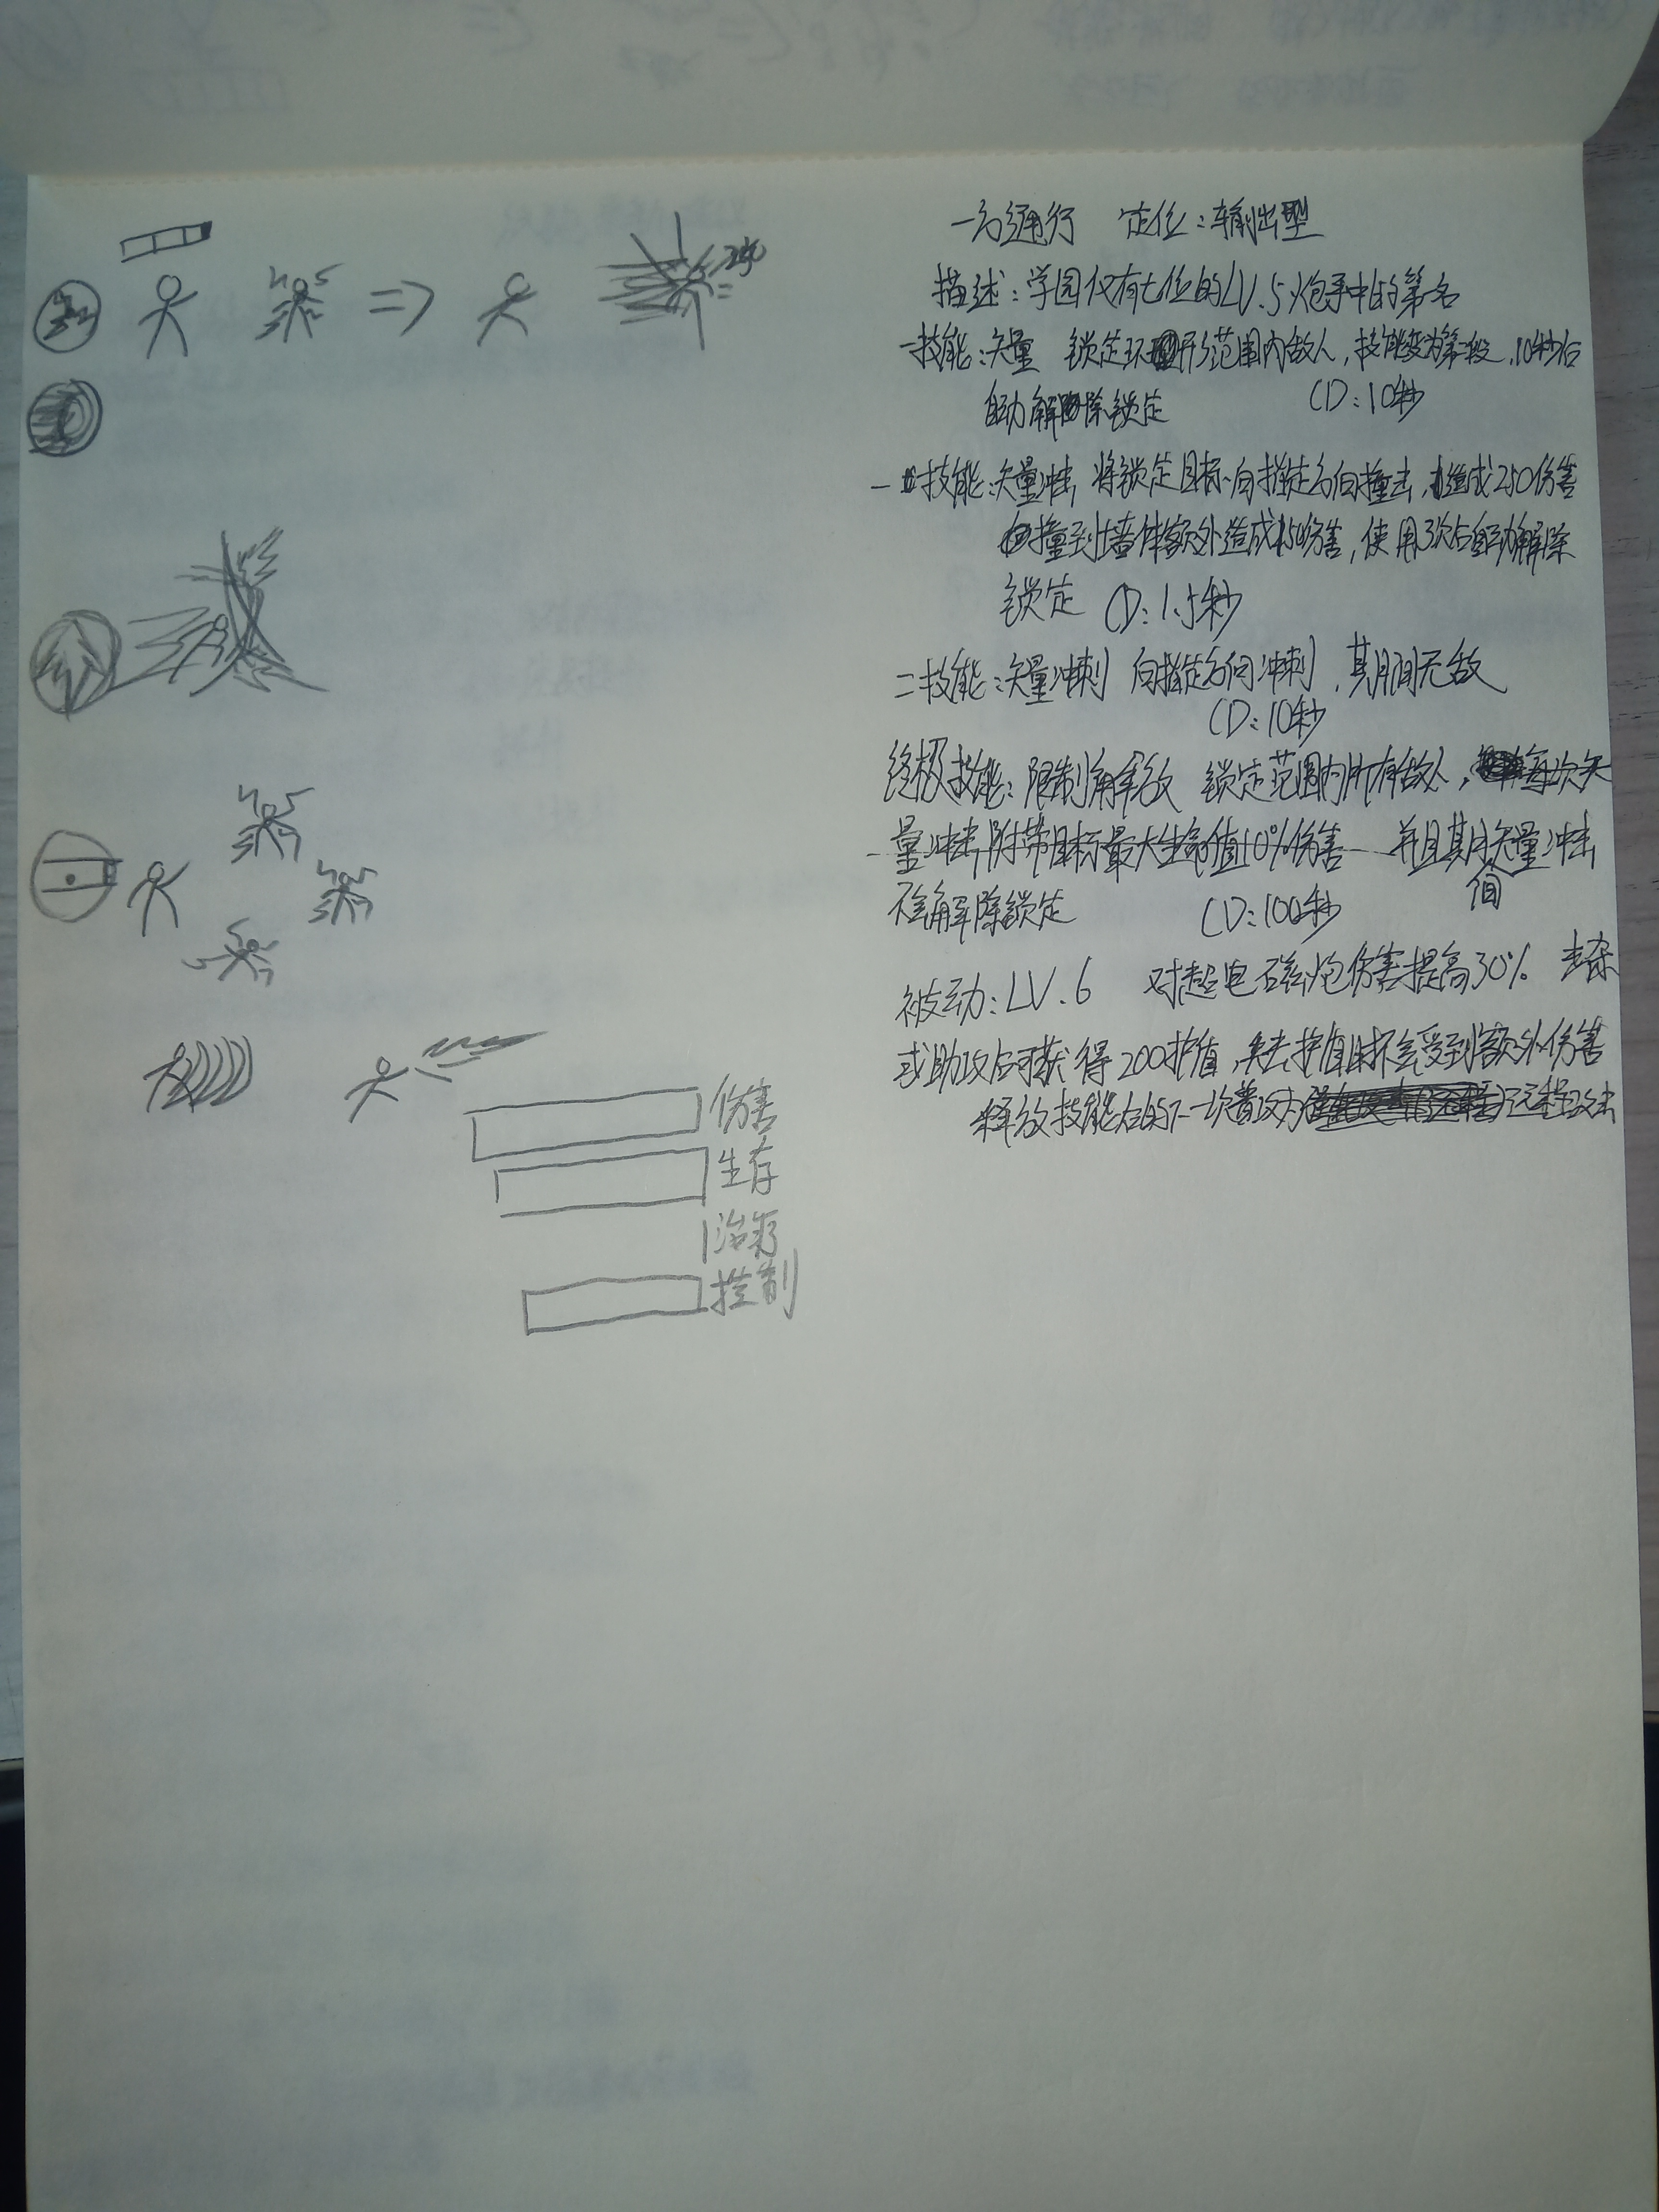 一方通行 定位:输出型
描述:学园仅有七位的LV.5 中的第一名
一技能:矢量 锁定环形范围内敌人,技能变为第二段,10秒后
自动解除锁定 CD:10秒
一技能:矢量冲击 将锁定目标向指定方向撞击,造成250伤害
撞到墙体额外造成150伤害,使用3次后自动解除
锁定 CD:1.5秒
二技能:矢量冲刺 向指定方向冲刺,其期间无敌
CD:10秒
终极技能:限制解放 锁定范围内所有敌人,每次矢
量冲击附带目标最大生命值10%伤害 并且期间矢量冲击
不会解除锁定 CD:100秒
被动:LV.6 对超电磁炮伤害提高30% 击杀
或助攻后可获得200护盾,失去护盾 会受到额外伤害
释放技能后的下一次普攻为 远程攻击
伤害
生存
治疗
控制